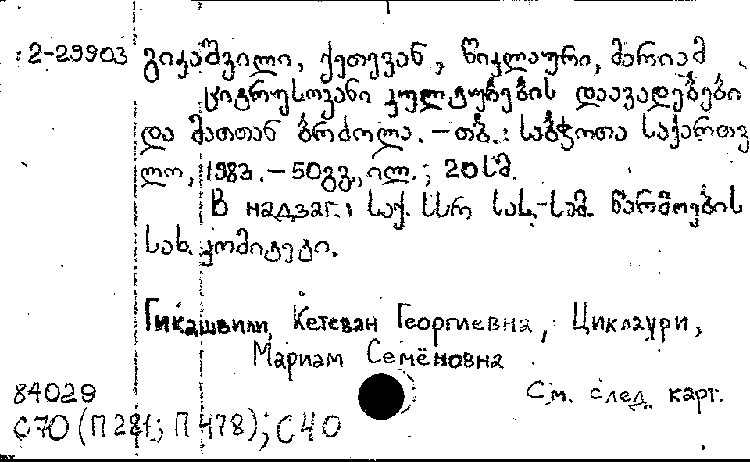 2-29903 გიკაშვილი, ქეთევან, წიკლაური, მარიამ
ციტრუსოვანი კულტურების დაავადებები
და მათთან ბრძოლა. – თბ.: საბჭოთა საქართვ
ლო, 1983. – 50გვ., ილ.; 20 სმ.
В надзаг.: საქ. სსრ სას.-სამ. წარმოების
სახ. კომიტეტი.
Гикашвили, Кетеван Георгиевна, Циклаури,
Мариам Семёновна
84029 См. след. карт.
С70 (П281; П478); С40